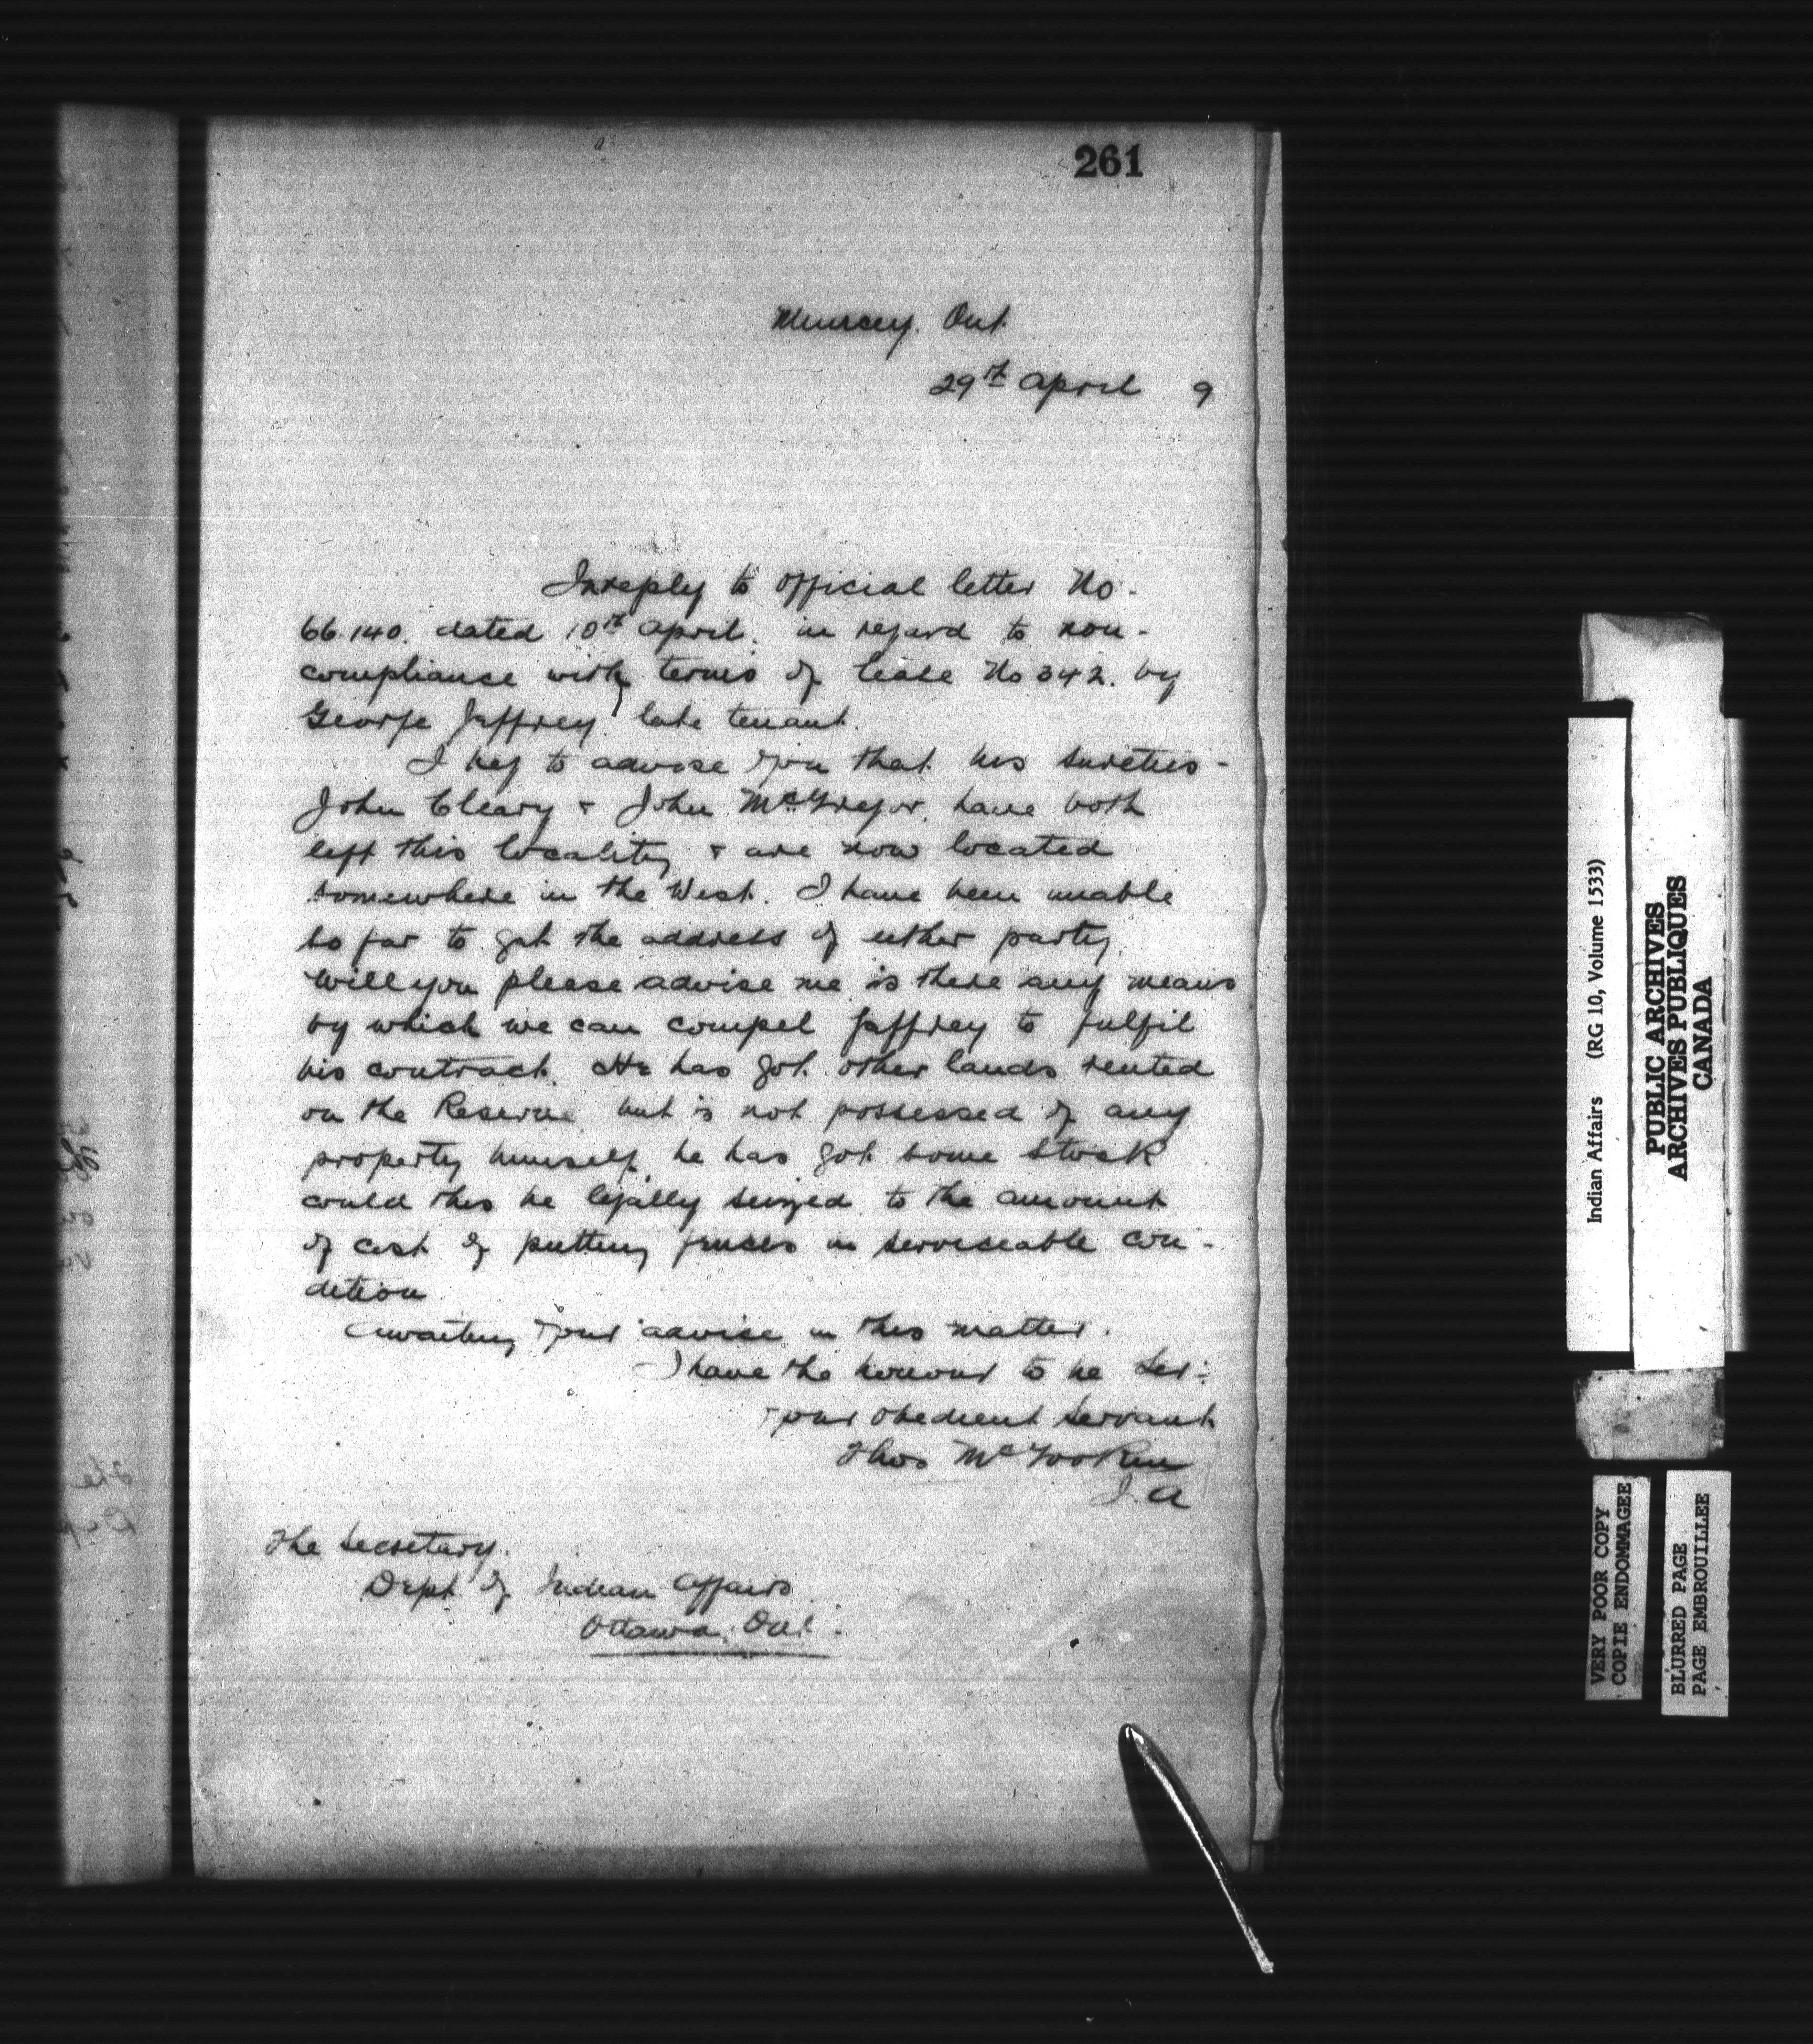 261
Muncey. Ont
29th April 9
In reply to official letter No.
66.140. dated 10th April. in regard to non-
compliance with terms of lease No 342. by
George Jeffrey, late tenant.
I beg to advise you that his sureties-
John Cleary & John McGregor, have both
left this locality & are now located
somewhere in the West. I have been unable
so far to get the address of either party.
Will you please advise me is there any means
by which we can compel Jaffrey to fulfil
his contract. He has got other lands rented
on the Reserve but is not possessed of any
property himself, he has got some stock
could this be legally seized to the amount
of cost of putting fences in serviseable con-
dition
Awaiting your advise in this matter.
I have the honour to be Sir:
Your obedient servant
Thos McGooken
I. A
The Secretary.
Dept of Indian Affairs
Ottawa, Ont.
Indian Affairs (RG 10, Volume 1533)
PUBLIC ARCHIVES
ARCHIVES PUBLIQUES
CANADA
VERY POOR COPY
COPIE ENDOMMAGEE
BLURRED PAGE
PAGE EMBROUILLEE